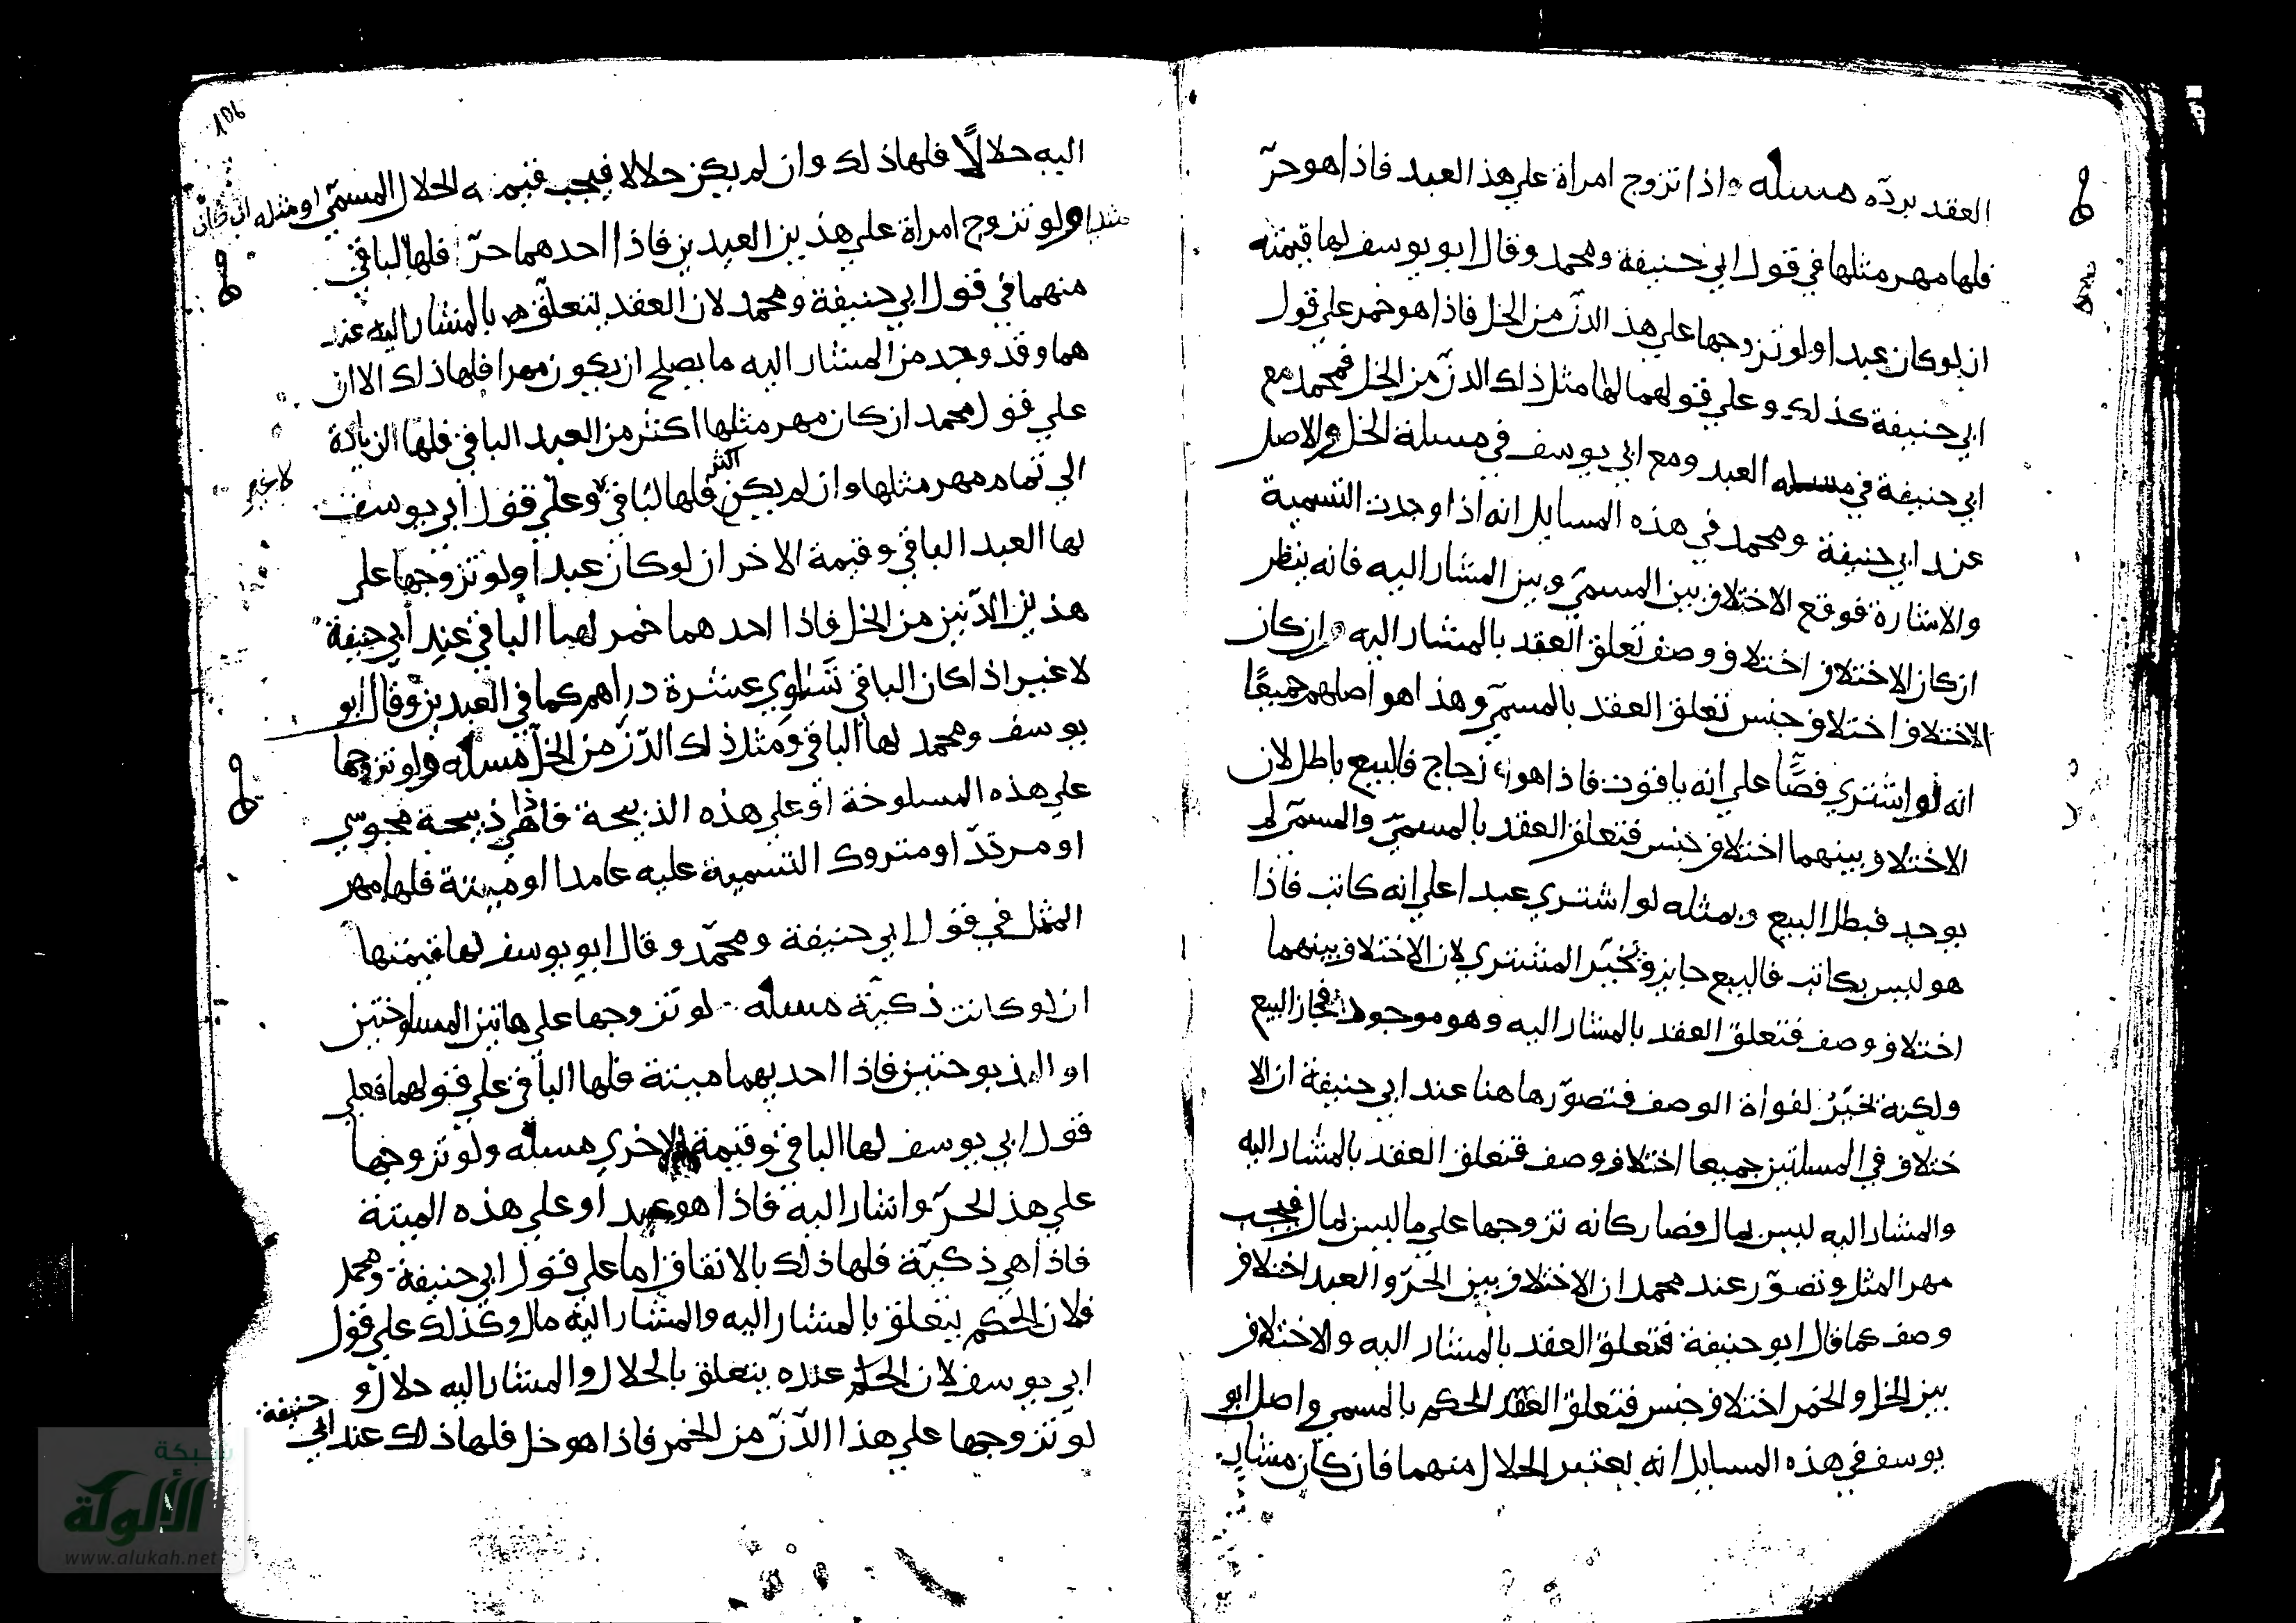 العقد برده مسله اذا تزوج امراة علي هذا العبد فاذا هو حرّ
فلها مهر مثلها في قول ابي حنيفة ومحمد وقال ابو يوسف لها قيمته
ان لو كان عبدا ولو تزوجها علي هذ الدنّ من الخل فاذا هو خمر علي قول
ابي حنيفة كذلك وعلي قولهما لها مثل ذلك الدنّ من الخل فمحمد مع
ابي حنيفة في مسله العبد ومع ابي يوسف في مسلة الخل والاصل
عند ابي حنيفة ومحمد في هذه المسايل انه اذا وجدت التسمية
والاشارة فوقع الاختلاف بين المسمّي وبين المشار اليه فانه ينظر
ان كان الاختلاف اختلاف وصف تعلق العقد بالمشار اليه وان كان
الاختلاف اختلاف جنس تعلق العقد بالمسمّي وهذا هو اصلهم جميعًا
انه لو اشتري فصًّا علي انه ياقوت فاذا هو زجاج فالبيع باطل لان
الاختلاف بينهما اختلاف جنس فتعلق العقد بالمسميّ والمسمّي لم
يوجد فبطل البيع وبمثله لو اشتري عبدا علي انه كاتب فاذا
هو ليس بكاتب فالبيع جايز ويخيّر المشتري لان الاختلاف بينهما
اختلاف وصف فتعلق العقد بالمشار اليه وهو موجود فجاز البيع
ولكنه يخيّر لفواة الوصف فتصوّرها هنا عند ابي حنيفة ان الا
ختلاف في المسلتين جميعا اختلاف وصف فتعلق العقد بالمشار اليه
والمشار اليه ليس بمال فصار كانه تزوجها علي ما ليس بمال فيجب
مهر المثل وتصوّر عند محمد ان الاختلاف بين الحرّ والعبد اختلاف
وصف كما قال ابو حنيفة فتعلق العقد بالمشار اليه والاختلاف
بين الخل والخمر اختلاف جنس فتعلق الحكم بالمسمي واصل ابو
يوسف في هذه المسايل انه يعتبر الحلال منهما فان كان مشار
106
اليه حلالًا فلها ذلك وان لم يكن حلالا فيجب قيمة الحلال المسمّي او مثله ان كان
مثليا ولو تزوج امراة علي هذين العبدين فاذا احدهما حرّ فلها الباقي
منهما في قول ابي حنيفة ومحمد لان العقد يتعلق بالمشار اليه عند
هما وقد وجد من المشار اليه ما يصلح ان يكون مهرا فلها ذلك الا ان
علي قول محمد ان كان مهر مثلها اكثر من العبد الباقي فلها الزيادة
الي تمام مهر مثلها وان لم يكن اكثر فلها الباقي وعلي قول ابي يوسف
لا غير
لها العبد الباقي وقيمة الاخر ان لو كان عبدا ولو تزوجها علي
هذين الدّنين من الخل فاذا احدهما خمر لها الباقي عند ابي حنيفة
لا غير اذا كان الباقي تساوي عشرة دراهم كما في العبدين وقال ابو
يوسف ومحمد لها الباقي ومثل ذلك الدّن من الخل مسله ولو تزوجها
علي هذه المسلوخة او علي هذه الذبيحة فاذا هي ذبيحة مجوسي
او مرتدّ او متروك التسمية عليه عامدا او ميتة فلها مهر
المثل في قول ابي حنيفة ومحمّد وقال ابو يوسف لها قيمتها
ان لو كانت ذكيّة مسله لو تزوجها علي هاتين المسلوختين
او المذبوحتين فاذا احديهما ميتة فلها الباقي علي قولهما فعلي
قول ابي يوسف لها الباقي وقيمة الاخري مسله ولو تزوجها
علي هذ الحرّ واشار اليه فاذا هو عبد او علي هذه الميتة
فاذا هي ذكيّة فلها ذلك بالاتفاق اما علي قول ابي حنيفة ومحمد
فلان الحكم يتعلق بالمشار اليه والمشار اليه مال وكذلك علي قول
ابي يوسف لان الحكم عنده يتعلق بالحلال والمشار اليه حلال و
لو تزوجها علي هذا الدّنّ من الخمر فاذا هو خل فلها ذلك عند ابي حنيفة
شبكة
الألوكة
www.alukah.net